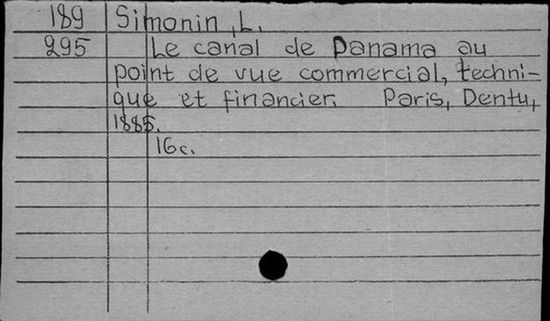 189 Simonin, L.
295 Le canal de Panama au
point de vue commercial, techni-
que et financier. Paris, Dentu,
1885.
16c.